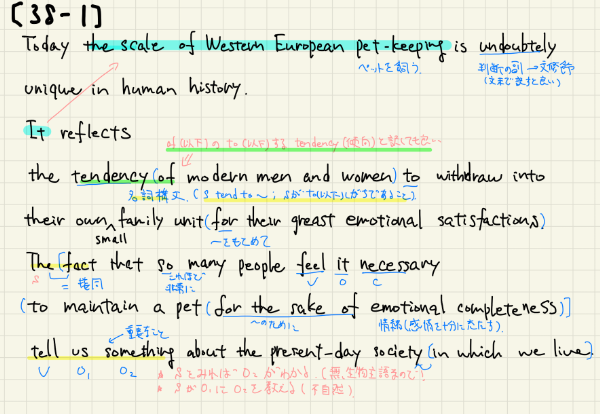 [38-1]
Today the scale of Western European pet-keeping is undoubtely
ペットを飼う. 判断の副→文修飾
(文末で訳すと良い)
unique in human history.
It reflects
of (以下) の to (以下) する tendency (傾向) と訳しても良い
the tendency (of modern men and women) to withdraw into
名詞構文. (S tend to ~ ; Sが to(以下)しがちであること)
their own small family unit (for their greast emotional satisfactions)
~をもとめて
The [fact that so many people feel it necessary
S = 接同 これほど 非常に V O C
(to maintain a pet (for the sake of emotional completeness)]
~のために 情緒(感情を十分にみたす)
重要なこと
tell us something about the present-day society (in which we live).
V O1 O2 * SとみればO2がわかる. (無生物主語なので)
* SがO1にO2を教える (不自然)